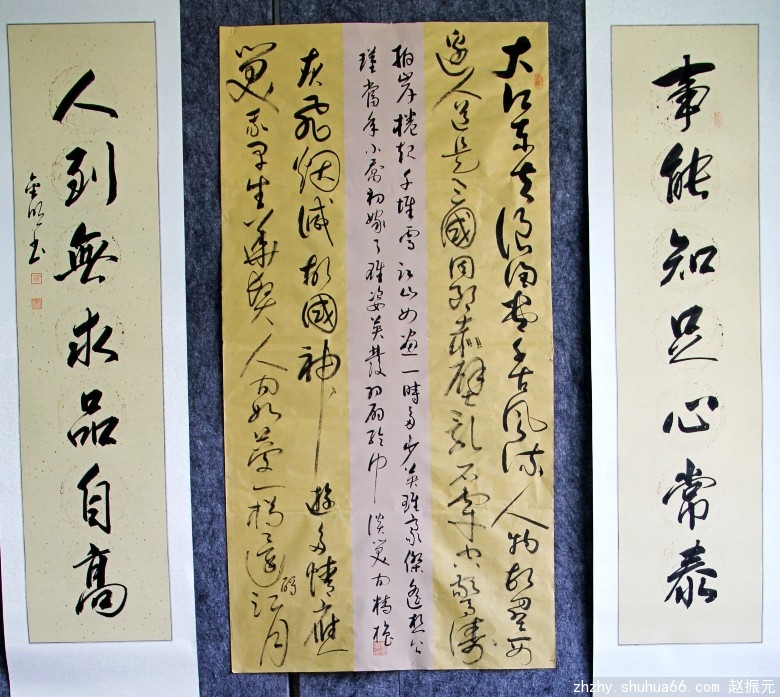 事能知足心常泰
大江东去浪淘盡千古風流人物故壘西
邊人道是三國周郎赤壁亂石穿空驚濤
拍岸捲起千堆雪江山如画一時多少英雄豪傑遙想公
瑾當年小喬初嫁了雄姿英發羽扇綸巾談笑间樯橹
灰飛烟滅故國神遊多情應
笑我早生華髮人间如夢一樽還酹江月
人到無求品自高
zhzhy.shuhua66.com 赵振元